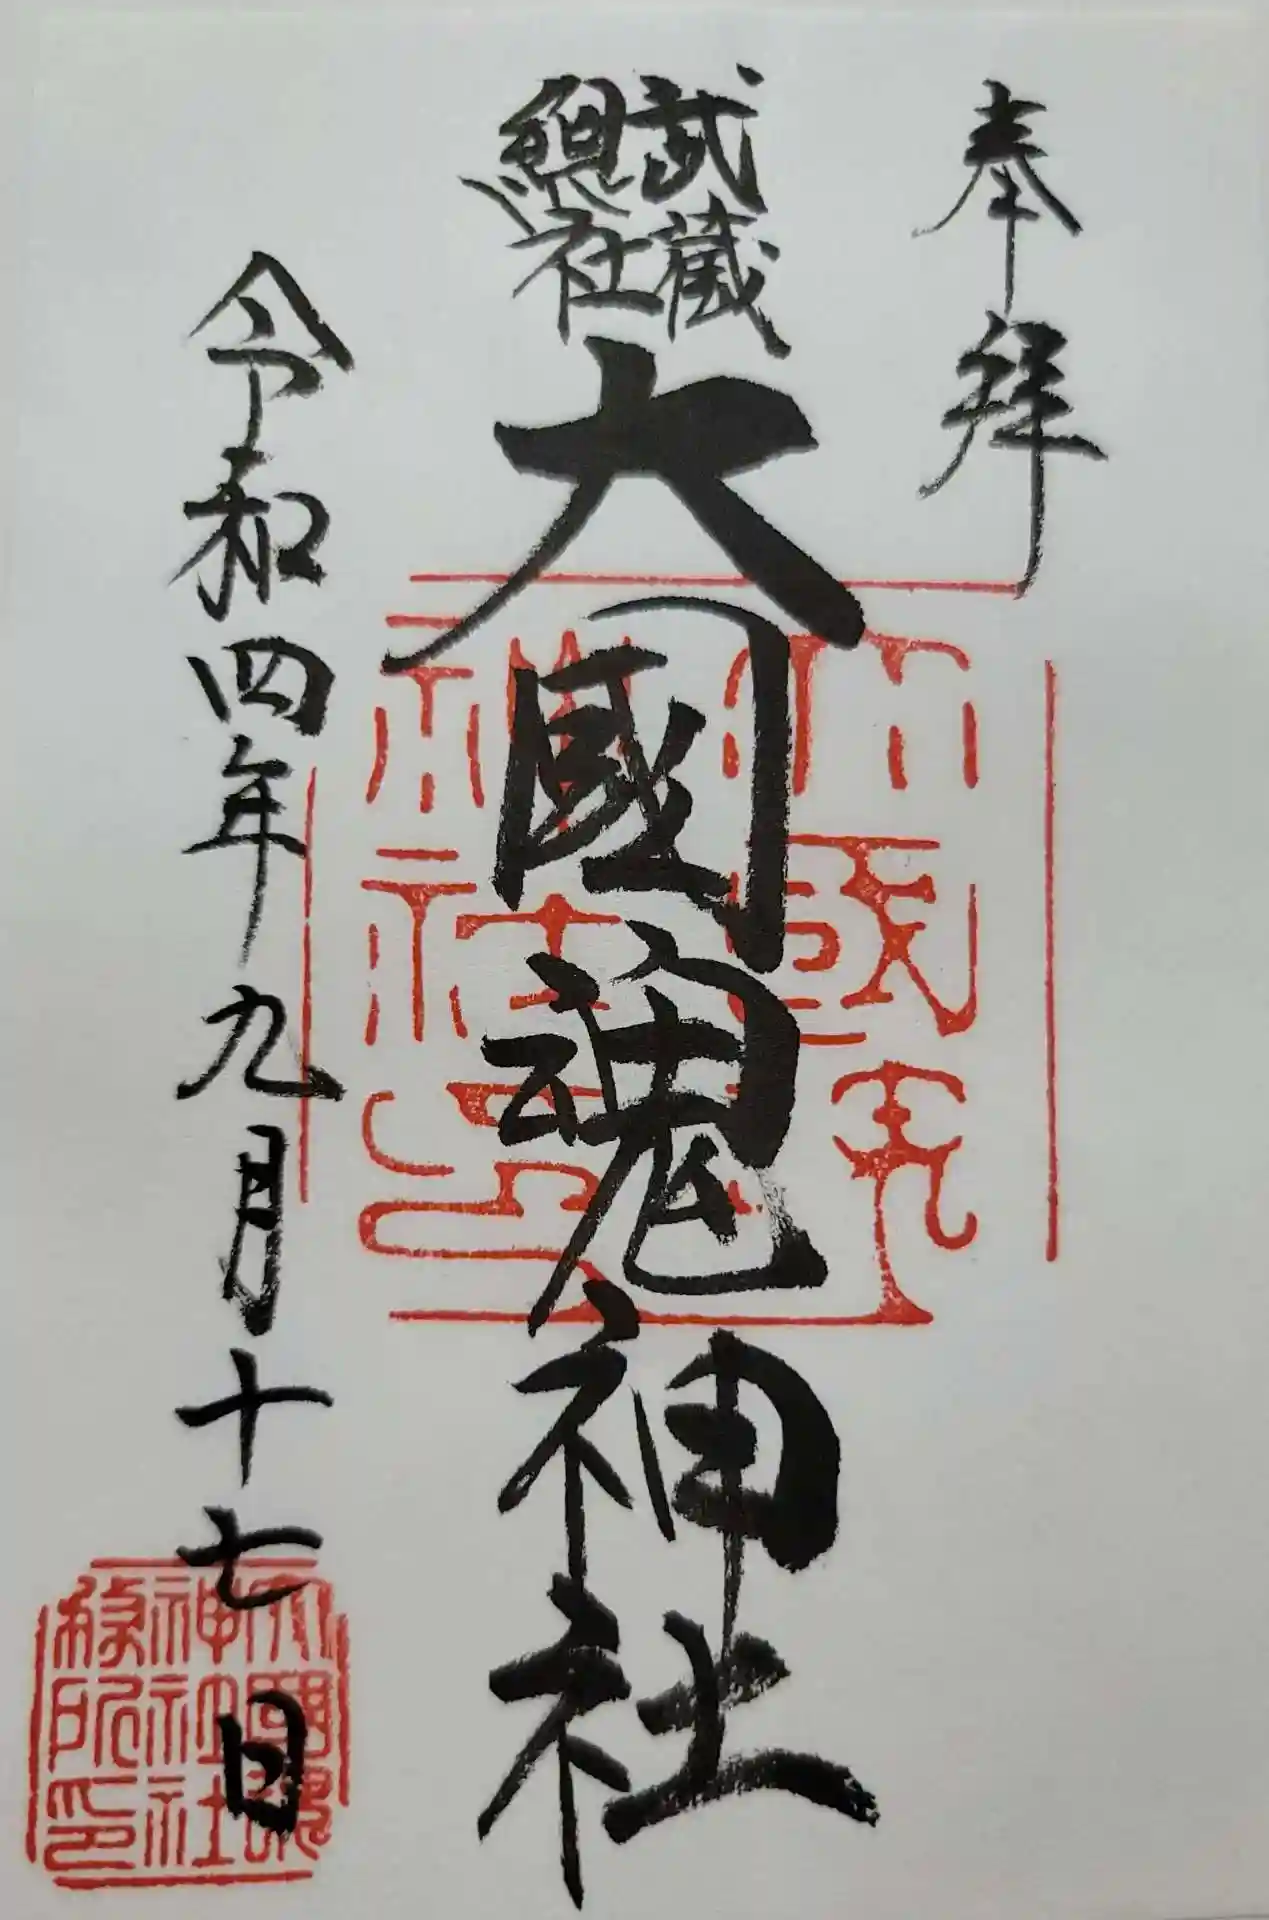 奉拝
武蔵
總社
大國魂神社
令和四年九月十七日
大國魂
神社社
務所印